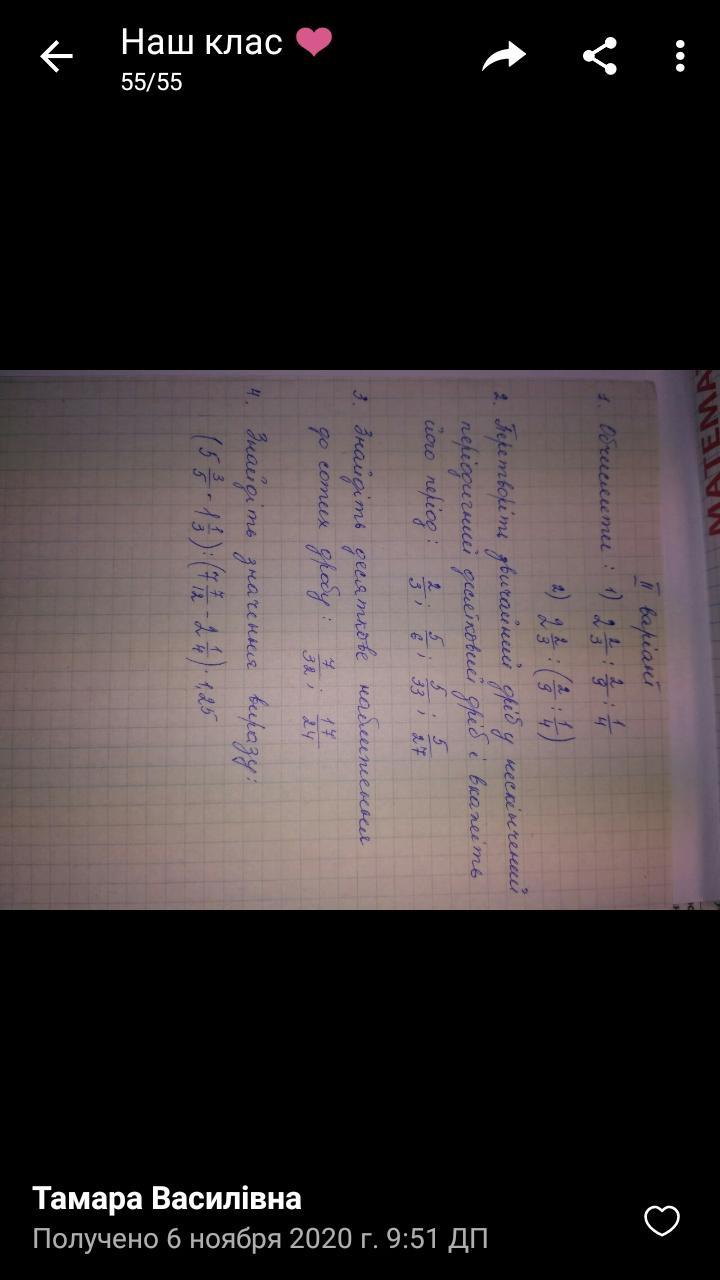 Наш клас ❤
55/55
МАТЕМА
II варіант
1. Обчислити : 1) 2 2/3 : 2/9 : 1/4
2) 2 2/3 : (2/9 : 1/4)
2. Перетворіть звичайний дріб у нескінчений
періодичний десятковий дріб і вкажіть
його період: 2/3; 5/6; 5/33; 5/27
3. Знайдіть десяткове наближення
до сотих дробу: 7/32; 17/24
4. Знайдіть значення виразу:
(5 3/5 · 1 1/3) : (7 7/12 - 2 1/4) · 1,25
Тамара Василівна
Получено 6 ноября 2020 г. 9:51 ДП